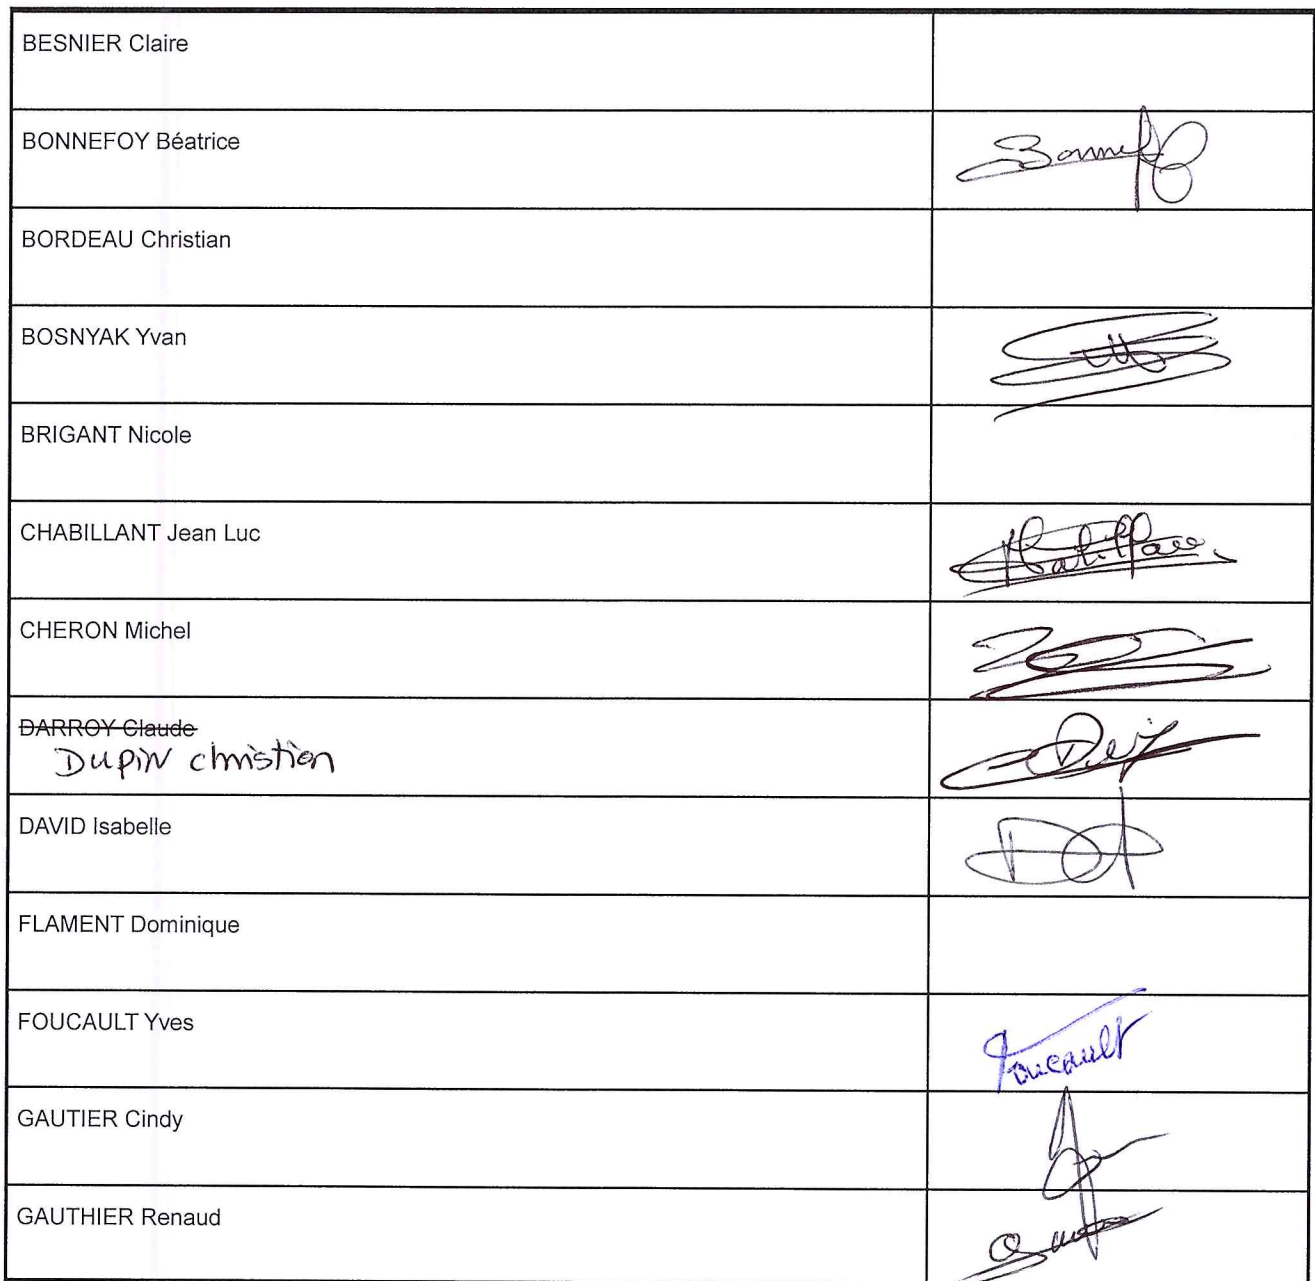 BESNIER Claire
BONNEFOY Béatrice
BORDEAU Christian
BOSNYAK Yvan
BRIGANT Nicole
CHABILLANT Jean Luc
CHERON Michel
DARROY Claude
DUPIN christian
DAVID Isabelle
FLAMENT Dominique
FOUCAULT Yves
Foucault
GAUTIER Cindy
GAUTHIER Renaud